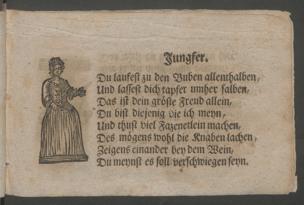 Jungfer.
Du laufest zu den Buben allenthalben,
Und lassest dich tapfer umher salben,
Das ist dein gröste Freud allein,
Du bist diejenig die ich meyn,
Und thust viel Fazenetlein machen,
Des mögens wohl die Knaben lachen,
Zeigens einander bey dem Wein,
Du meynst es soll verschwiegen seyn.